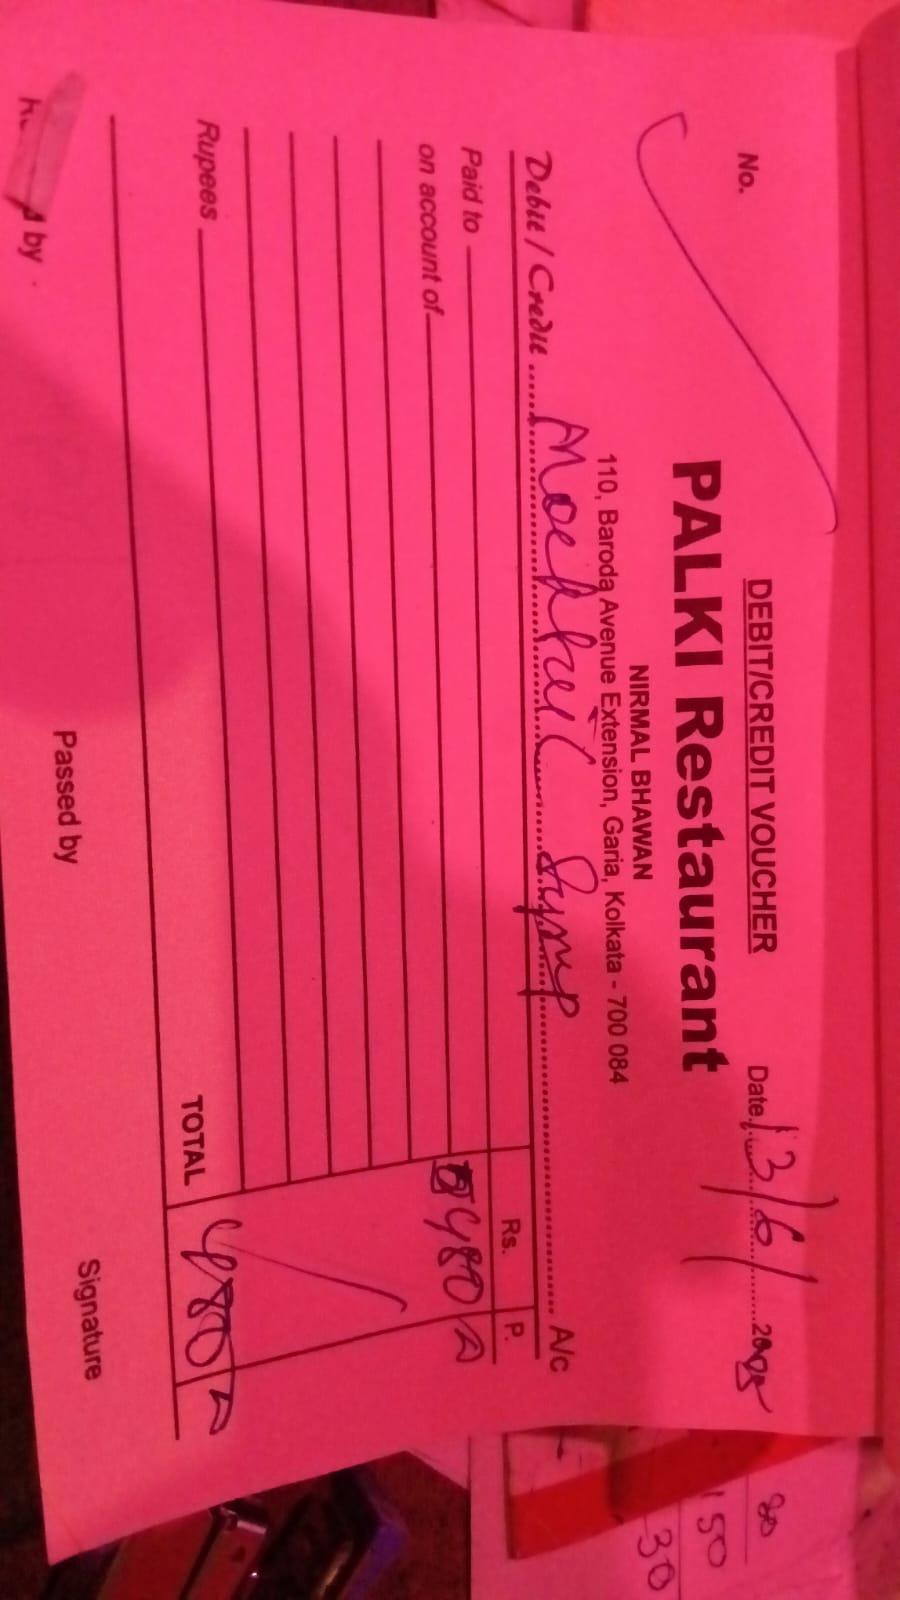 DEBIT/CREDIT VOUCHER
No. Date 13/6/
PALKI Restaurant
NIRMAL BHAWAN
110, Baroda Avenue Extension, Garia, Kolkata - 700 084
Debit / Credit Syrup A/c
Rs. P.
Paid to 480
on account of
Rupees
TOTAL 480
by Passed by Signature
80
150
30